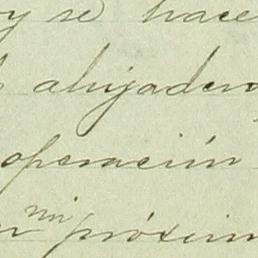 y se hace
ahijadero
operación
n mi próxim